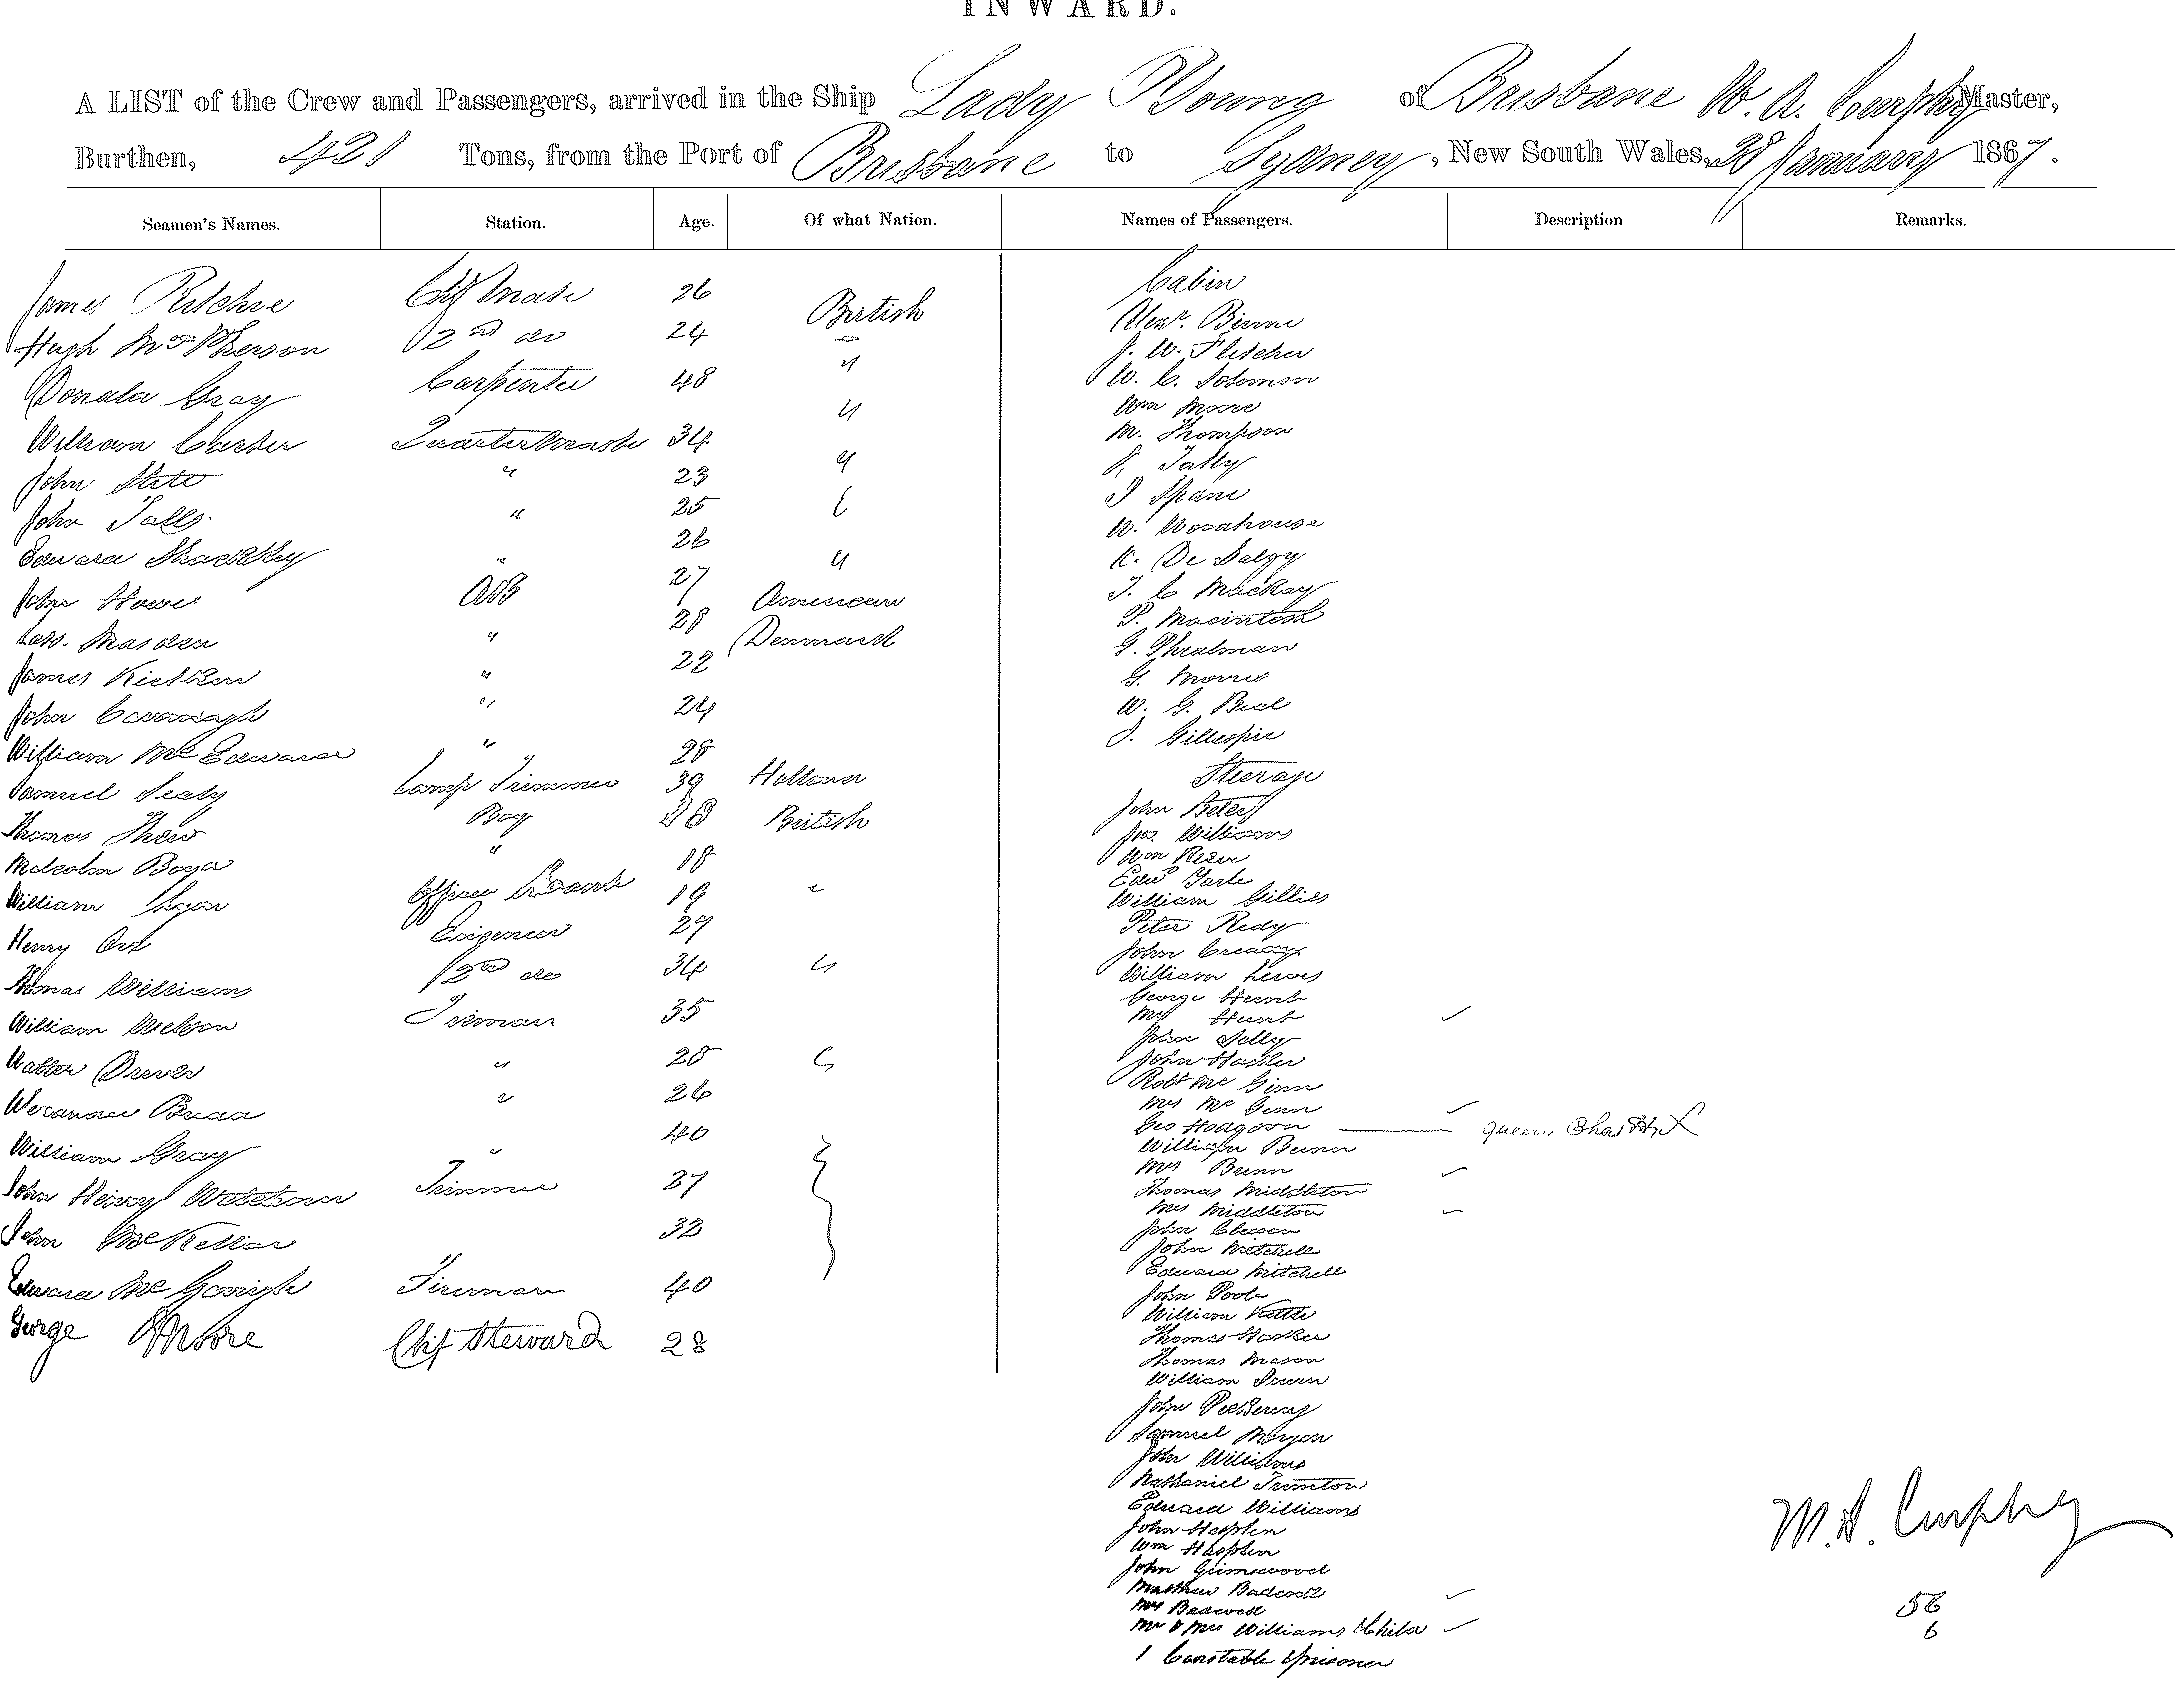 INWARD.
A LIST of the Crew and Passengers, arrived in the Ship Lady Young of Brisbane W. A. Curphey Master,
Burthen, 421 Tons, from the Port of Brisbane to Sydney, New South Wales, January 1867.
Seamen's Names. Station. Age. Of what Nation. Names of Passengers. Description Remarks.
James Ritchie Chf Mate 26 British
Hugh McPherson 2nd do 24 "
Donald Gray Carpenter 48 "
William Quartermaster 34 "
John " 23
John Falls " 25
Edward " 26 "
John Howe AB 27 American
28 Denmark
James " 22
John Cavanagh " 24
William McEdward " 28
Samuel Sealy Lamp Trimmer 39 Holland
Thomas Boy British
Malcolm Boyd " 18
William 19 "
Henry Ord Engineer 29
Thomas Williams 2nd do 34 "
William Nelson Fireman 35
Walter " 28
" 26
William Gray " 40
John Henry Trimmer 27
John McKellar 32
Edward McGonigle Fireman 40
George Moore Chf Steward 28
Cabin
Alexr. Binnie
J. W. Fletcher
W. C. Solomon
Wm Moore
M. Thompson
Tally
Spain
W. Woodhouse
De Salgy
J. C Mackay
P. Macintosh
G. Thralman
G. Morris
W. G. Beal
J. Gillespie
Steerage
John Peters
Jas. Williams
Wm
Edwd
William Gillies
Peter Redy
John Creary
William Lewis
George Hunt
Mrs Hunt
John Jelly
John
Robt McGinn
Mrs McGinn
Geo Hodgson
William Bunn
Mrs Bunn
Thomas Middleton
Mrs Middleton
John
John Mitchell
Edward Mitchell
John Poole
William
Thomas Harker
Thomas Mason
William
John Pickering
Samuel Morgan
John Williams
Nathaniel Trimton
Edward Williams
John Hesplen
Wm Hesplen
John Grimswood
Matthew Badcock
Mrs Badcock
Mr & Mrs Williams & Child
1 Constable & prisoner
Curphey
56
6